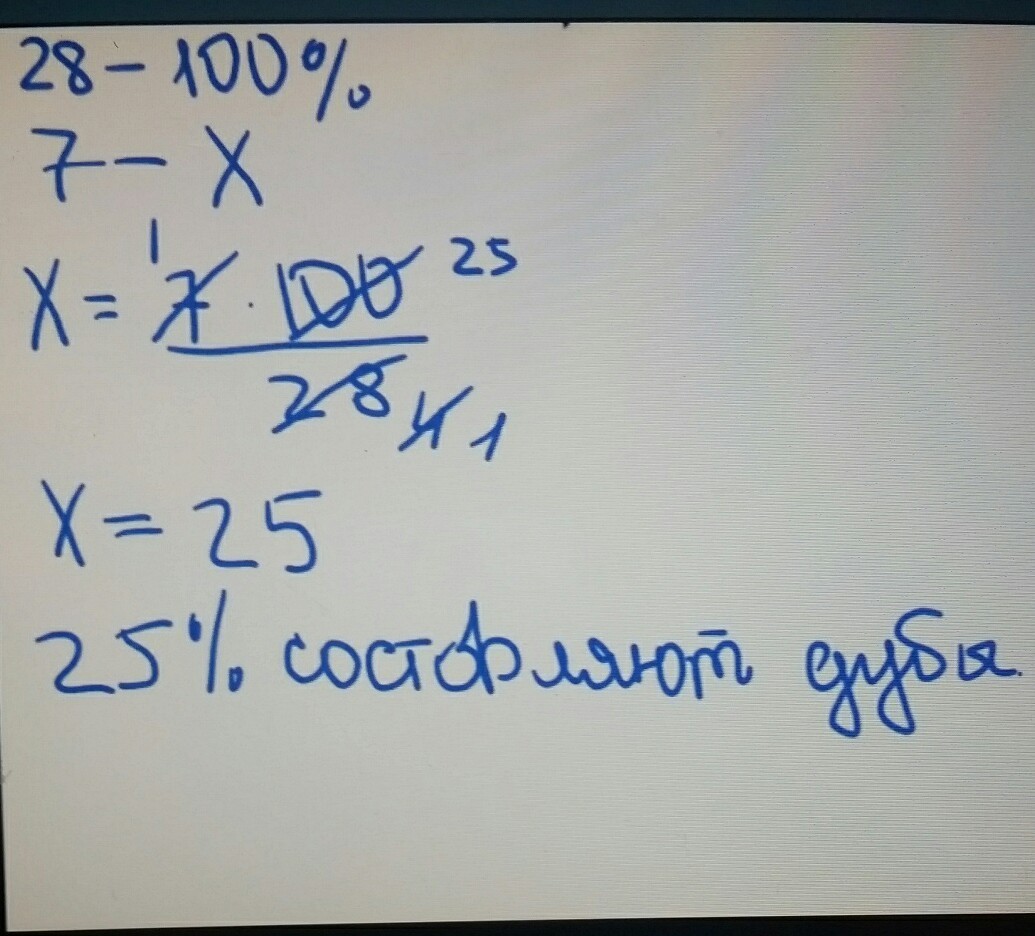 28 - 100%
7 - X
X = 1 7 · 100 25
28 4 1
X = 25
25% составляют дубы.